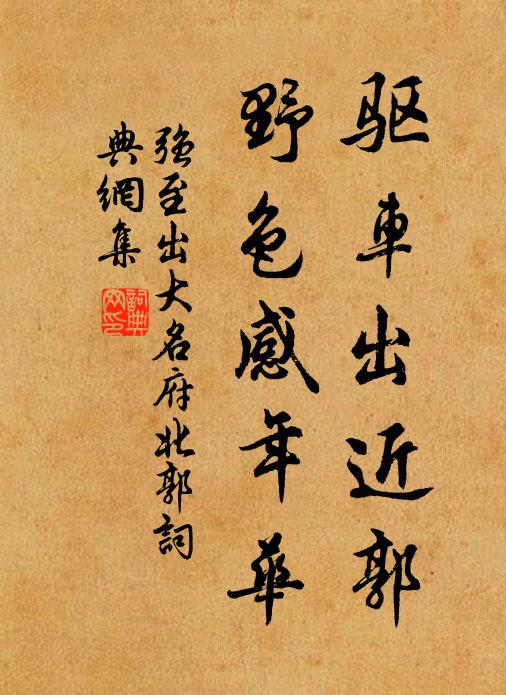 驱車出近郭
野色感年華
強至出大名府北郭詞
典網集
詞典
网印